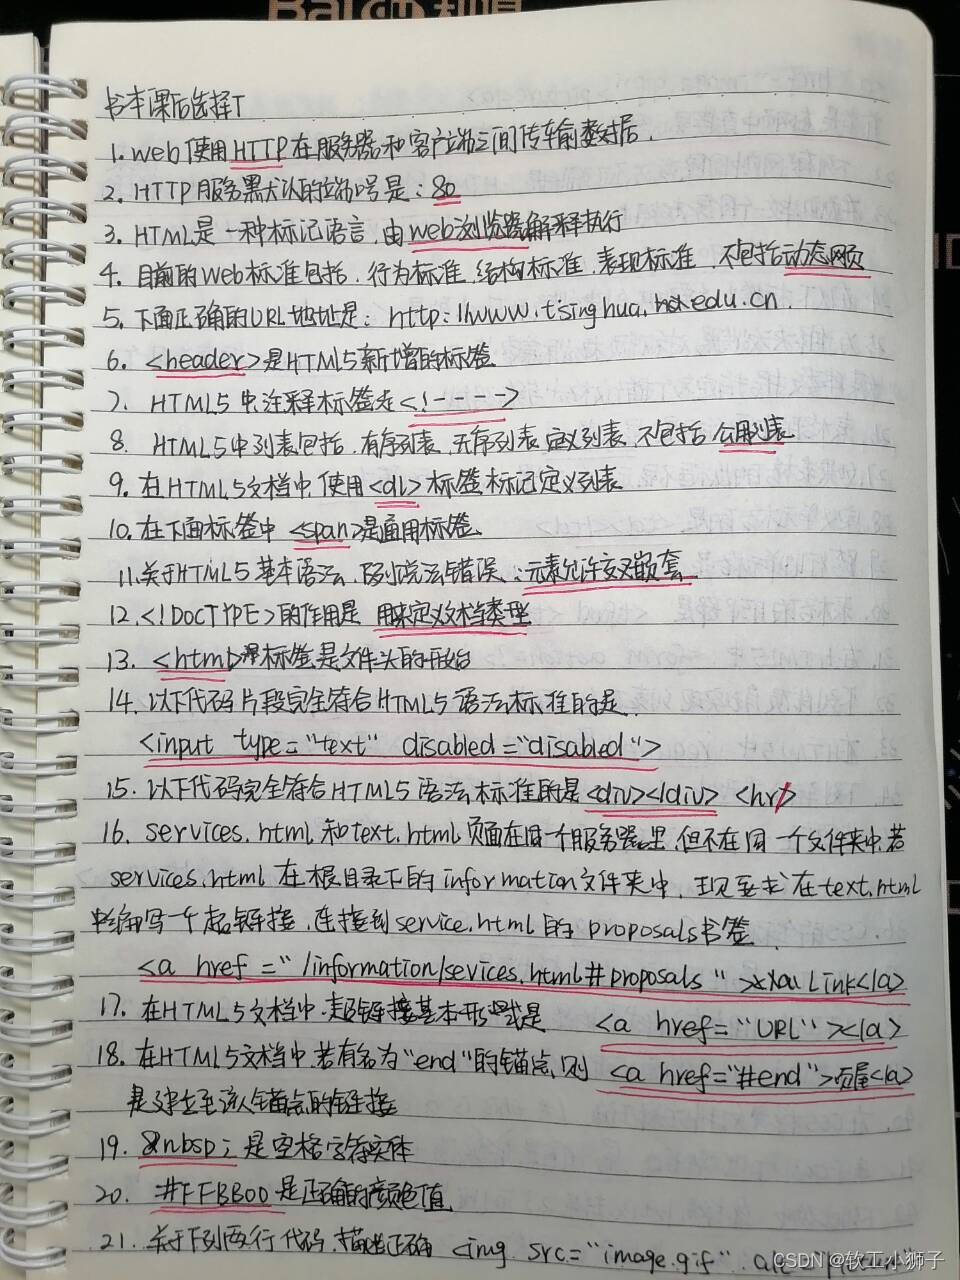 Bai 知道
书本课后选择T
1. web使用HTTP在服务器和客户端之间传输数据.
2. HTTP服务默认的端口号是: 80
3. HTML是一种标记语言,由web浏览器解释执行
4. 目前的Web标准包括,行为标准,结构标准,表现标准,不包括动态网页
5. 下面正确的URL地址是: http://www.tsinghua.edu.cn
6. <header>是HTML5新增的标签
7. HTML5中注释标签是<!---->
8. HTML5中列表包括,有序列表,无序列表,定义列表,不包括公用列表
9. 在HTML5文档中,使用<dl>标签标记定义列表
10. 在下面标签中<span>是通用标签
11. 关于HTML5基本语法,下列说法错误:元素允许交叉嵌套
12. <!DOCTYPE>的作用是 用来定义文档类型
13. <html>标签是文件头的开始
14. 以下代码片段完全符合HTML5语法标准的是
<input type="text" disabled="disabled">
15. 以下代码完全符合HTML5语法标准的是<div></div> <hr/>
16. services.html和text.html页面在同一个服务器里,但不在同一个文件夹中,若
services.html在根目录下的information文件夹中,现要求在text.html
中编写一个超链接,连接到service.html的proposals书签
<a href="/information/sevices.html#proposals">Link</a>
17. 在HTML5文档中,超链接基本形式是 <a href="URL"></a>
18. 在HTML5文档中,若有名为"end"的锚点,则 <a href="#end">页尾</a>
是建立至该锚点的链接
19. &nbsp;是空格字符实体
20. #FFBB00是正确的颜色值
21. 关于下列两行代码,描述正确 <img src="image.gif" alt=
CSDN @软工小狮子